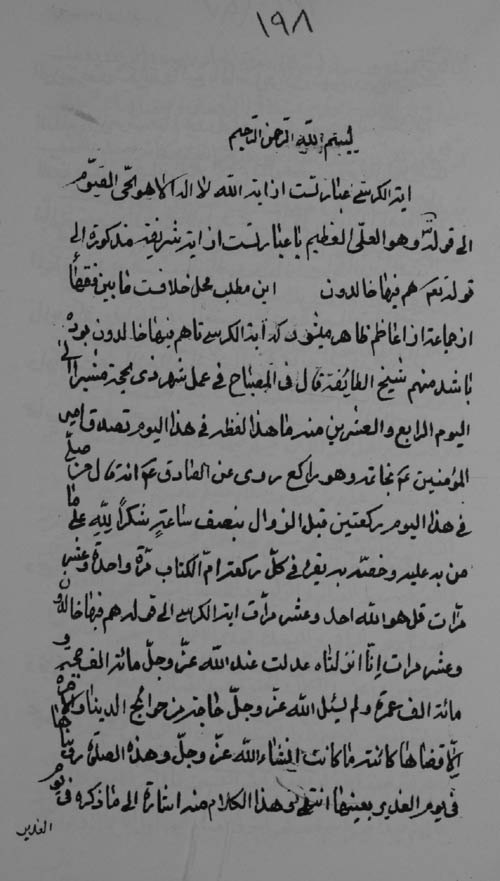 ١٩٨
بسم الله الرحمن الرحيم
اية الكرسي عبارتست از اية الله لا اله الا هو الحي القيوم
الى قوله وهو العلي العظيم يا عبارتست از اية شريفة مذكورة الى
قوله تعم هم فيها خالدون اين مطلب محل خلافت ما بين فقها
از جماعة از اعاظم ظاهر ميشود كه اية الكرسي تا هم فيها خالدون بوده
باشد منهم شيخ الطائفة قال في المصباح في عمل شهر ذي حجة مشيرا الى
اليوم الرابع والعشرين منه ما هذا لفظه في هذا اليوم تصدق امير
المؤمنين ع بخاتمه وهو راكع روى عن الصادق ع انه قال من صلى
في هذا اليوم ركعتين قبل الزوال بنصف ساعة شكرا لله على ما
من به عليه وخصه به يقرء في كل ركعة ام الكتاب مرة واحدة وعشر
مرات قل هو الله احد وعشر مرات اية الكرسي الى قوله هم فيها خالدون
وعشر مرات انا انزلناه عدلت عند الله عز وجل مائة الف حجة و
مائة الف عمرة ولم يسئل الله عز وجل حاجة من حوائج الدنيا والاخرة
الا قضاها كائنة ما كانت انشاء الله عز وجل وهذه الصلوة رويناها
في يوم الغدير بعينها انتهى وهذا الكلام منه اشارة الى ما ذكره في يوم
الغدير